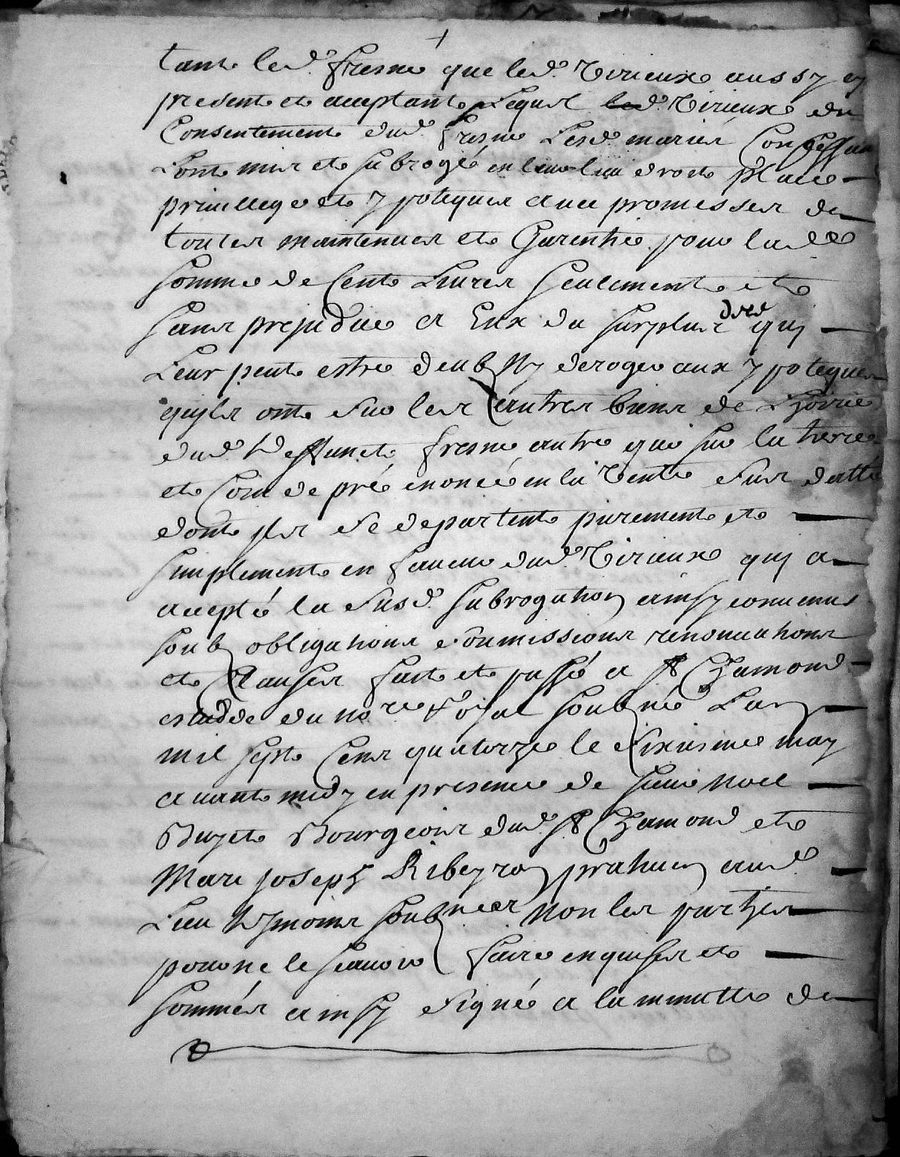 tant led. fresne que led. Tirieux aussy y
present et aceptant Lequel led. Tirieux du
Consentement dud. fresne Lesd. mariés Confessans
Lont mis et subrogé en leur lieu droit place
privilege et ypoteques avec promesses de
toutes maintenues et Garentie pour lade
somme de Cent Livres seulement et
sans prejudice a Eux du surplus desd qui
Leur peut estre deub Ny deroger aux ypoteques
quils ont sur les autres biens de Lhoirie
dud. Deffunct fresne autre que sur la terre
et Coin de pré enoncé en la Vente sus datté
dont ils se departent purement et
simplement en faveur dud. Tirieux qui a
accepté la susd. subrogation ainsy convenus
soub obligations soumissions renonciations
et Clauses fait et passé a St Chamond
estude du nore Royal soubné Lan
mil sept Cens quatorze le sixiesme may
avant midy en presence de sieur noel
Bourgeois dud. St Chamond et
Marc joseph Ribeyron praticien aud.
Lieu tesmoins soubnes non les parties
pour ne le scavoir faire enquises et
sommés ainsy signé a la minutte de